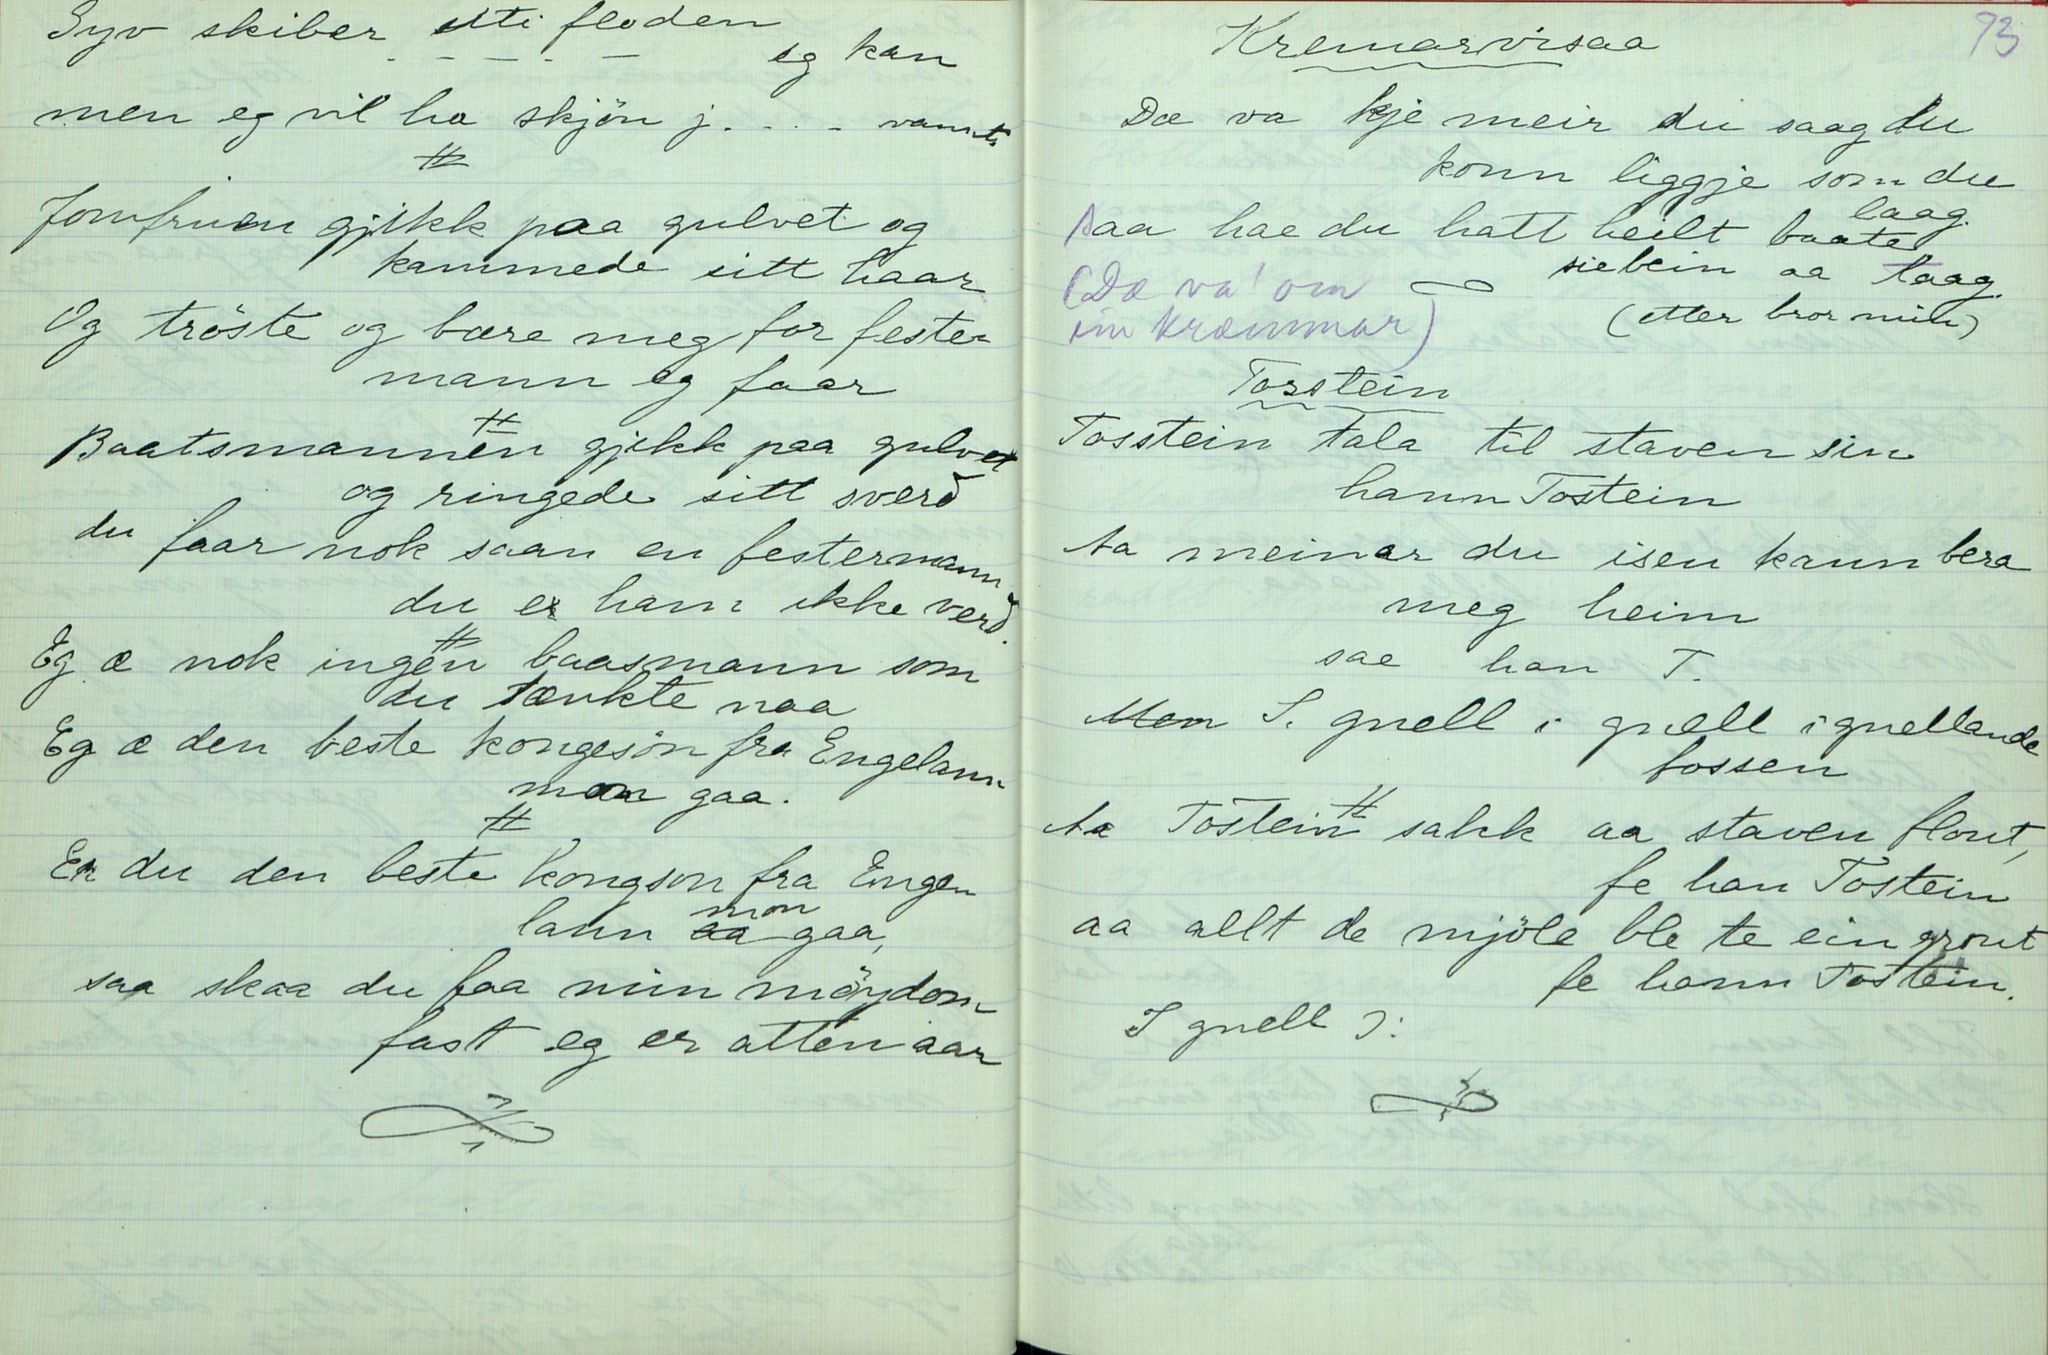 Syv skiber uti floden
- - - - - eg kan
men eg vil ha skjön j. . . . vanat
#
Jomfruen gjikk paa gulvet og
kammede sitt haar
Og tröste og bære meg for fester
mann eg faar
#
Baatsmannen gjekk paa gulvet
og ringede sitt sverd
du faar nok saan en festermann
du er ham ikke verd.
#
Eg æ nok ingen baasmann som
du tænkte naa
Eg æ den beste kongesön fra Engelann
mon gaa.
#
Er du den beste kongson fra Engen
lann mon gaa,
saa skaa du faa min möydom
fast eg er atten aar
73
Kremarvisaa
Dæ va kje meir du saag du
konn liggje som du
laag.
saa hae du hatt heilt baate
siebein aa taag.
(Dæ va' om
ein kræmmar)
(etter bror min)
Torstein
Tosstein tala til staven sin
hann Tostein
Aa meinar du isen kann bera
meg heim
sae han T.
I gnell i gnell i gnellande
fossen
#
Aa Tostein sakk aa staven flout,
fe han Tostein
aa allt de mjöle ble te ein grout
fe hann Tostein.
I gnell ):